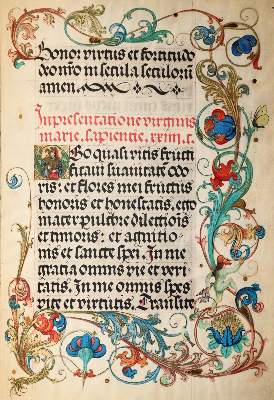 honor virtus et fortitudo
domino in secula seculorum
amen.
In presentatione virginis
marie. sapientie. xxiiii. c.
Ego quasi vitis fructi
ficavi suavitatē odo
ris: et flores mei fructus
honoris et honestatis. ego
mater pulchre dilectiōis
et timoris: et agnitio
nis et sancte spei. In me
gratia omnis vie et veri
tatis. In me omnis spes
vite et virtutis. Transite